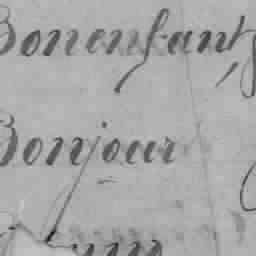 Bonenfant,
Bonjour